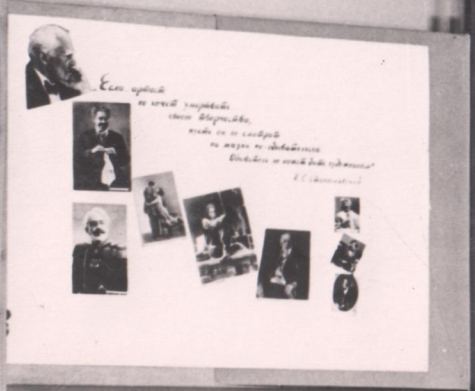 Если артист
не хочет умертвить
своего творчества,
пусть он не смотрит
на жизнь по-обывательски.
Обыватель не может быть художником"
К. С. Станиславский